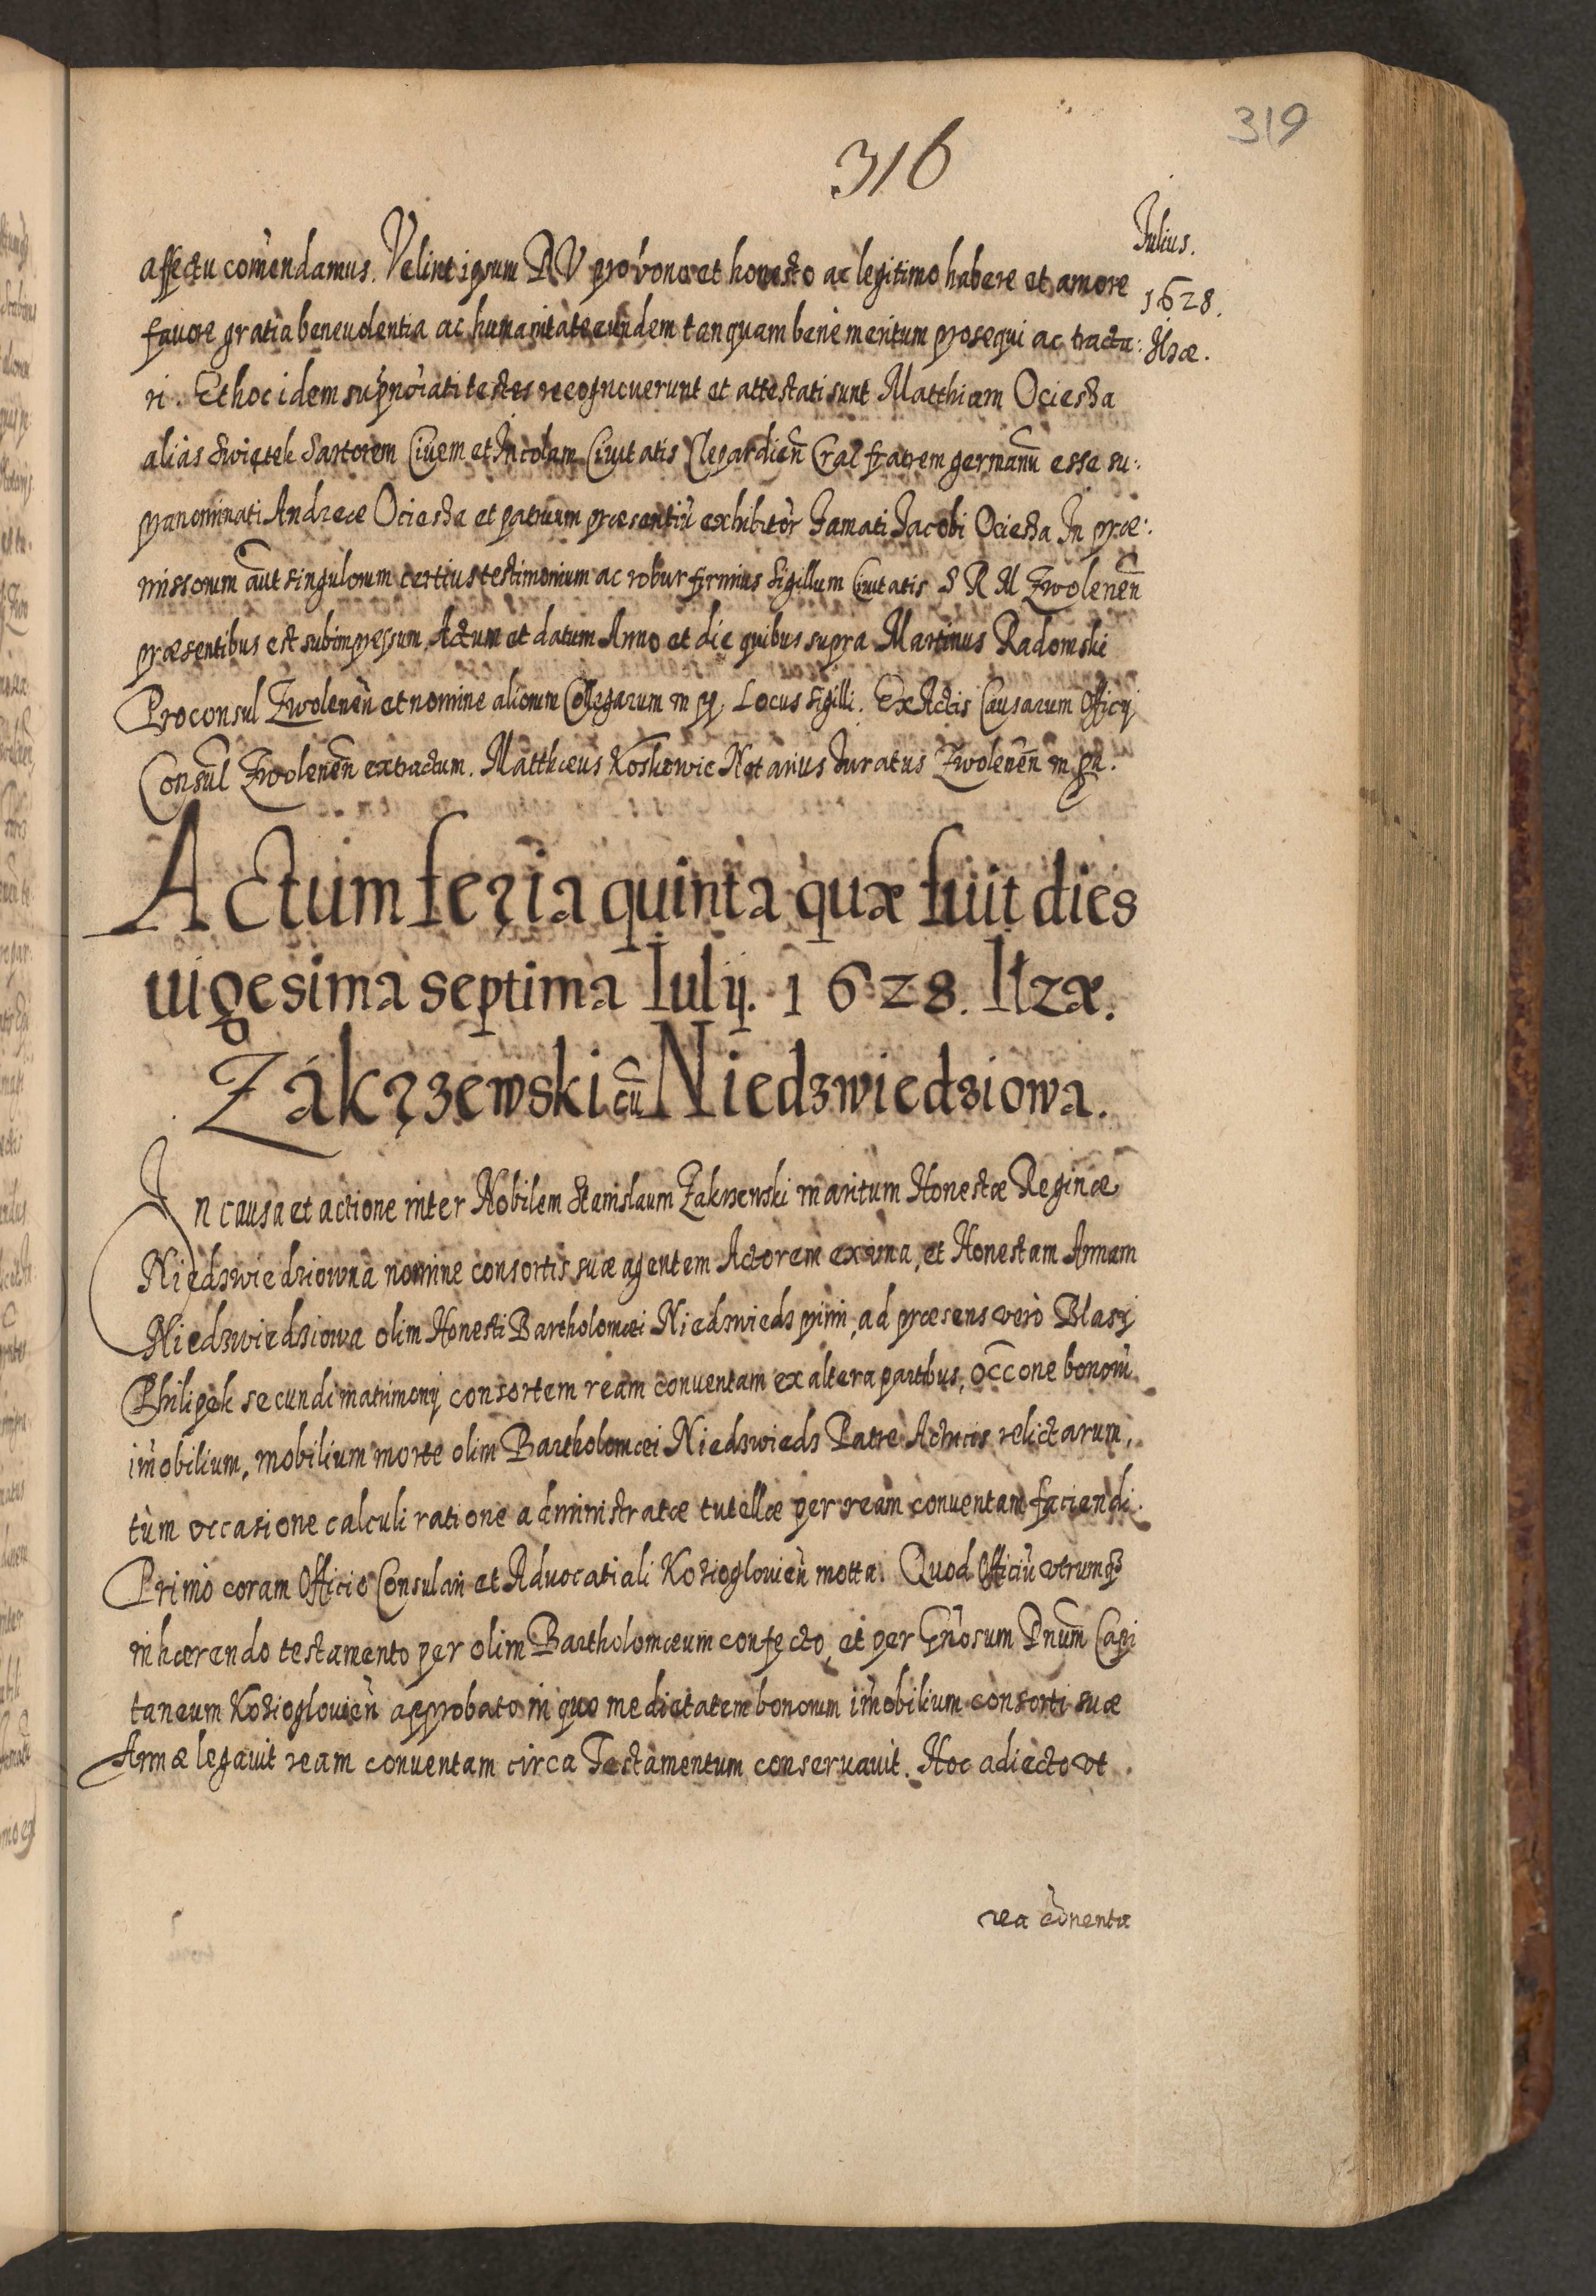 319
316
Julius.
1628.
Ilzæ.
affectu com̃endamus. Velint ipsum RV pro bono et honesto ac legitimo habere et amore
fauore gratia beneuolentia ac humanitate eundem tanquam benè meritum prosequi ac tracta:
ri. Et hoc idem supnoĩati testes recognouerunt et attestati sunt Matthiam Ociesza
aliàs Swiętek Sartorem Ciuem et Incolam Ciuitatis Clepardieñ Crac fratrem germanũ esse su:
pranominati Andreæ Ociesza et patruum præsentiũ exhibitor̃ Famati Jacobi Ociesza In præ:
missorum aũt singulorum certius testimonium ac robur firmius Sigillum Ciuitatis S R M Zwoleneñ
præsentibus est subimpressum. Actum et datum Anno et die quibus supra Martinus Radomski
Proconsul Zwoleneñ et nomine aliorum Collegarum m pp. Locus Sigilli. Ex Actis Causarum Officij
Consul̃ Zwoleneñ extractum. Matthæus Koskowic Notarius Juratus Zwoleneñ m pp.
Actum feria quinta quæ fuit dies
uigesima septima Iulij. 1628. Iłzæ.
Zákrzewski cũ Niedzwiedziowa.
In causa et actione inter Nobilem Stanislaum Zakrzewski maritum Honestæ Reginæ
Niedzwiedziowna nomine consortis suæ agentem Actorem ex una, et Honestam Annam
Niedzwiedziowa olim Honesti Bartholomæi Niedzwiedz primi, ad præsens verò Blasij
Philipek secundi matrimonij consortem ream conuentam ex altera partibus, occ̃one bonorũ
im̃obilium, mobilium morte olim Bartholomæi Niedzwiedz Patre Actricis relictarum,
tùm occasione calculi ratione administratæ tutellæ per ream conuentam faciendi.
Primò coram Officio Consulari et Aduocatiali Kozioglouieñ motta. Quod Officiũ vtrumq3
inhærendo testamento per olim Bartholomæum confecto, et per Gñosum Dnum̃ Capi
taneum Kozioglouieñ approbato in quo medietatem bonorum im̃obilium consorti suæ
Annæ legauit ream conuentam circa Testamentum conseruauit. Hoc adiecto vt
rea cõuenta